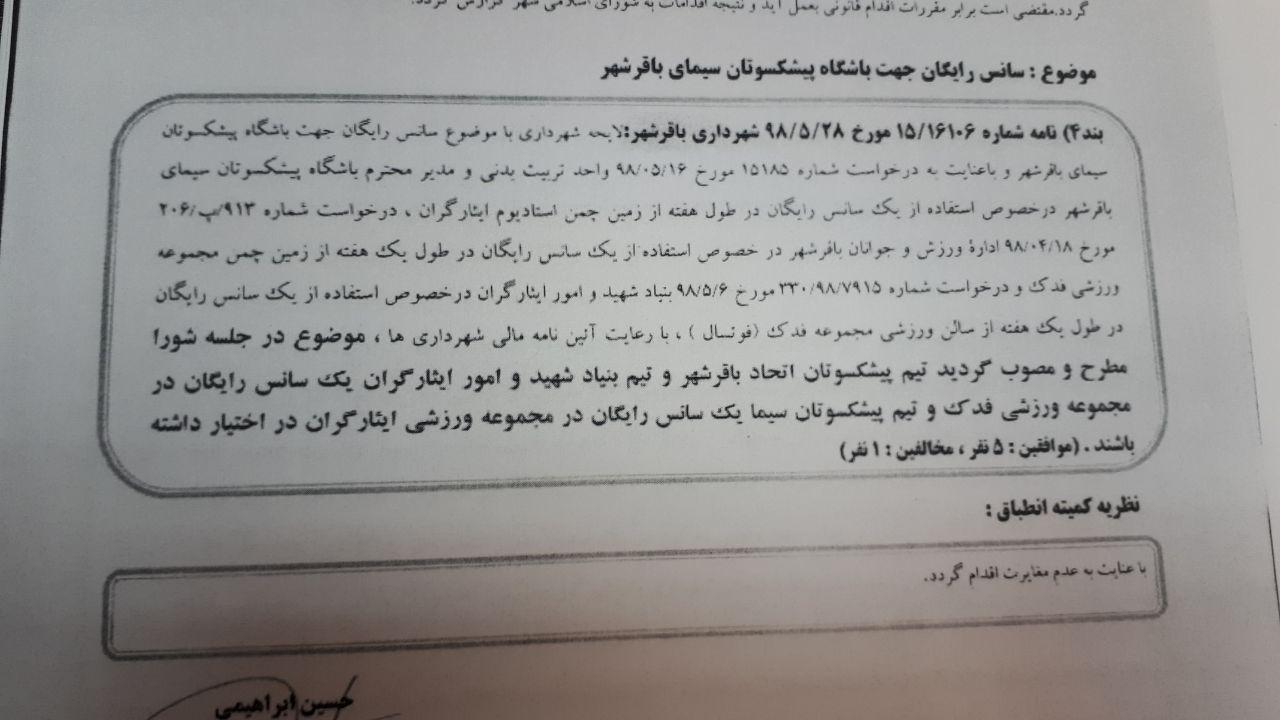 گردد.مقتضی است برابر مقررات اقدام قانونی بعمل آید و نتیجه اقدامات به شورای اسلامی شهر گزارش گردد.
موضوع : سانس رایگان جهت باشگاه پیشکسوتان سیمای باقرشهر
بند۴) نامه شماره ۱۵/۱۶۱۰۶ مورخ ۹۸/۵/۲۸ شهرداری باقرشهر:لایحه شهرداری با موضوع سانس رایگان جهت باشگاه پیشکسوتان
سیمای باقرشهر و باعنایت به درخواست شماره ۱۵۱۸۵ مورخ ۹۸/۰۵/۱۶ واحد تربیت بدنی و مدیر محترم باشگاه پیشکسوتان سیمای
باقرشهر درخصوص استفاده از یک سانس رایگان در طول هفته از زمین چمن استادیوم ایثارگران ، درخواست شماره ۹۱۳/پ/۲۰۶
مورخ ۹۸/۰۴/۱۸ ادارهٔ ورزش و جوانان باقرشهر در خصوص استفاده از یک سانس رایگان در طول یک هفته از زمین چمن مجموعه
ورزشی فدک و درخواست شماره ۳۳۰/۹۸/۷۹۱۵ مورخ ۹۸/۵/۶ بنیاد شهید و امور ایثارگران درخصوص استفاده از یک سانس رایگان
در طول یک هفته از سالن ورزشی مجموعه فدک (فوتسال ) ، با رعایت آئین نامه مالی شهرداری ها ، موضوع در جلسه شورا
مطرح و مصوب گردید تیم پیشکسوتان اتحاد باقرشهر و تیم بنیاد شهید و امور ایثارگران یک سانس رایگان در
مجموعه ورزشی فدک و تیم پیشکسوتان سیما یک سانس رایگان در مجموعه ورزشی ایثارگران در اختیار داشته
باشند . (موافقین : ۵ نفر ، مخالفین : ۱ نفر)
نظریه کمیته انطباق :
با عنایت به عدم مغایرت اقدام گردد.
حسین ابراهیمی